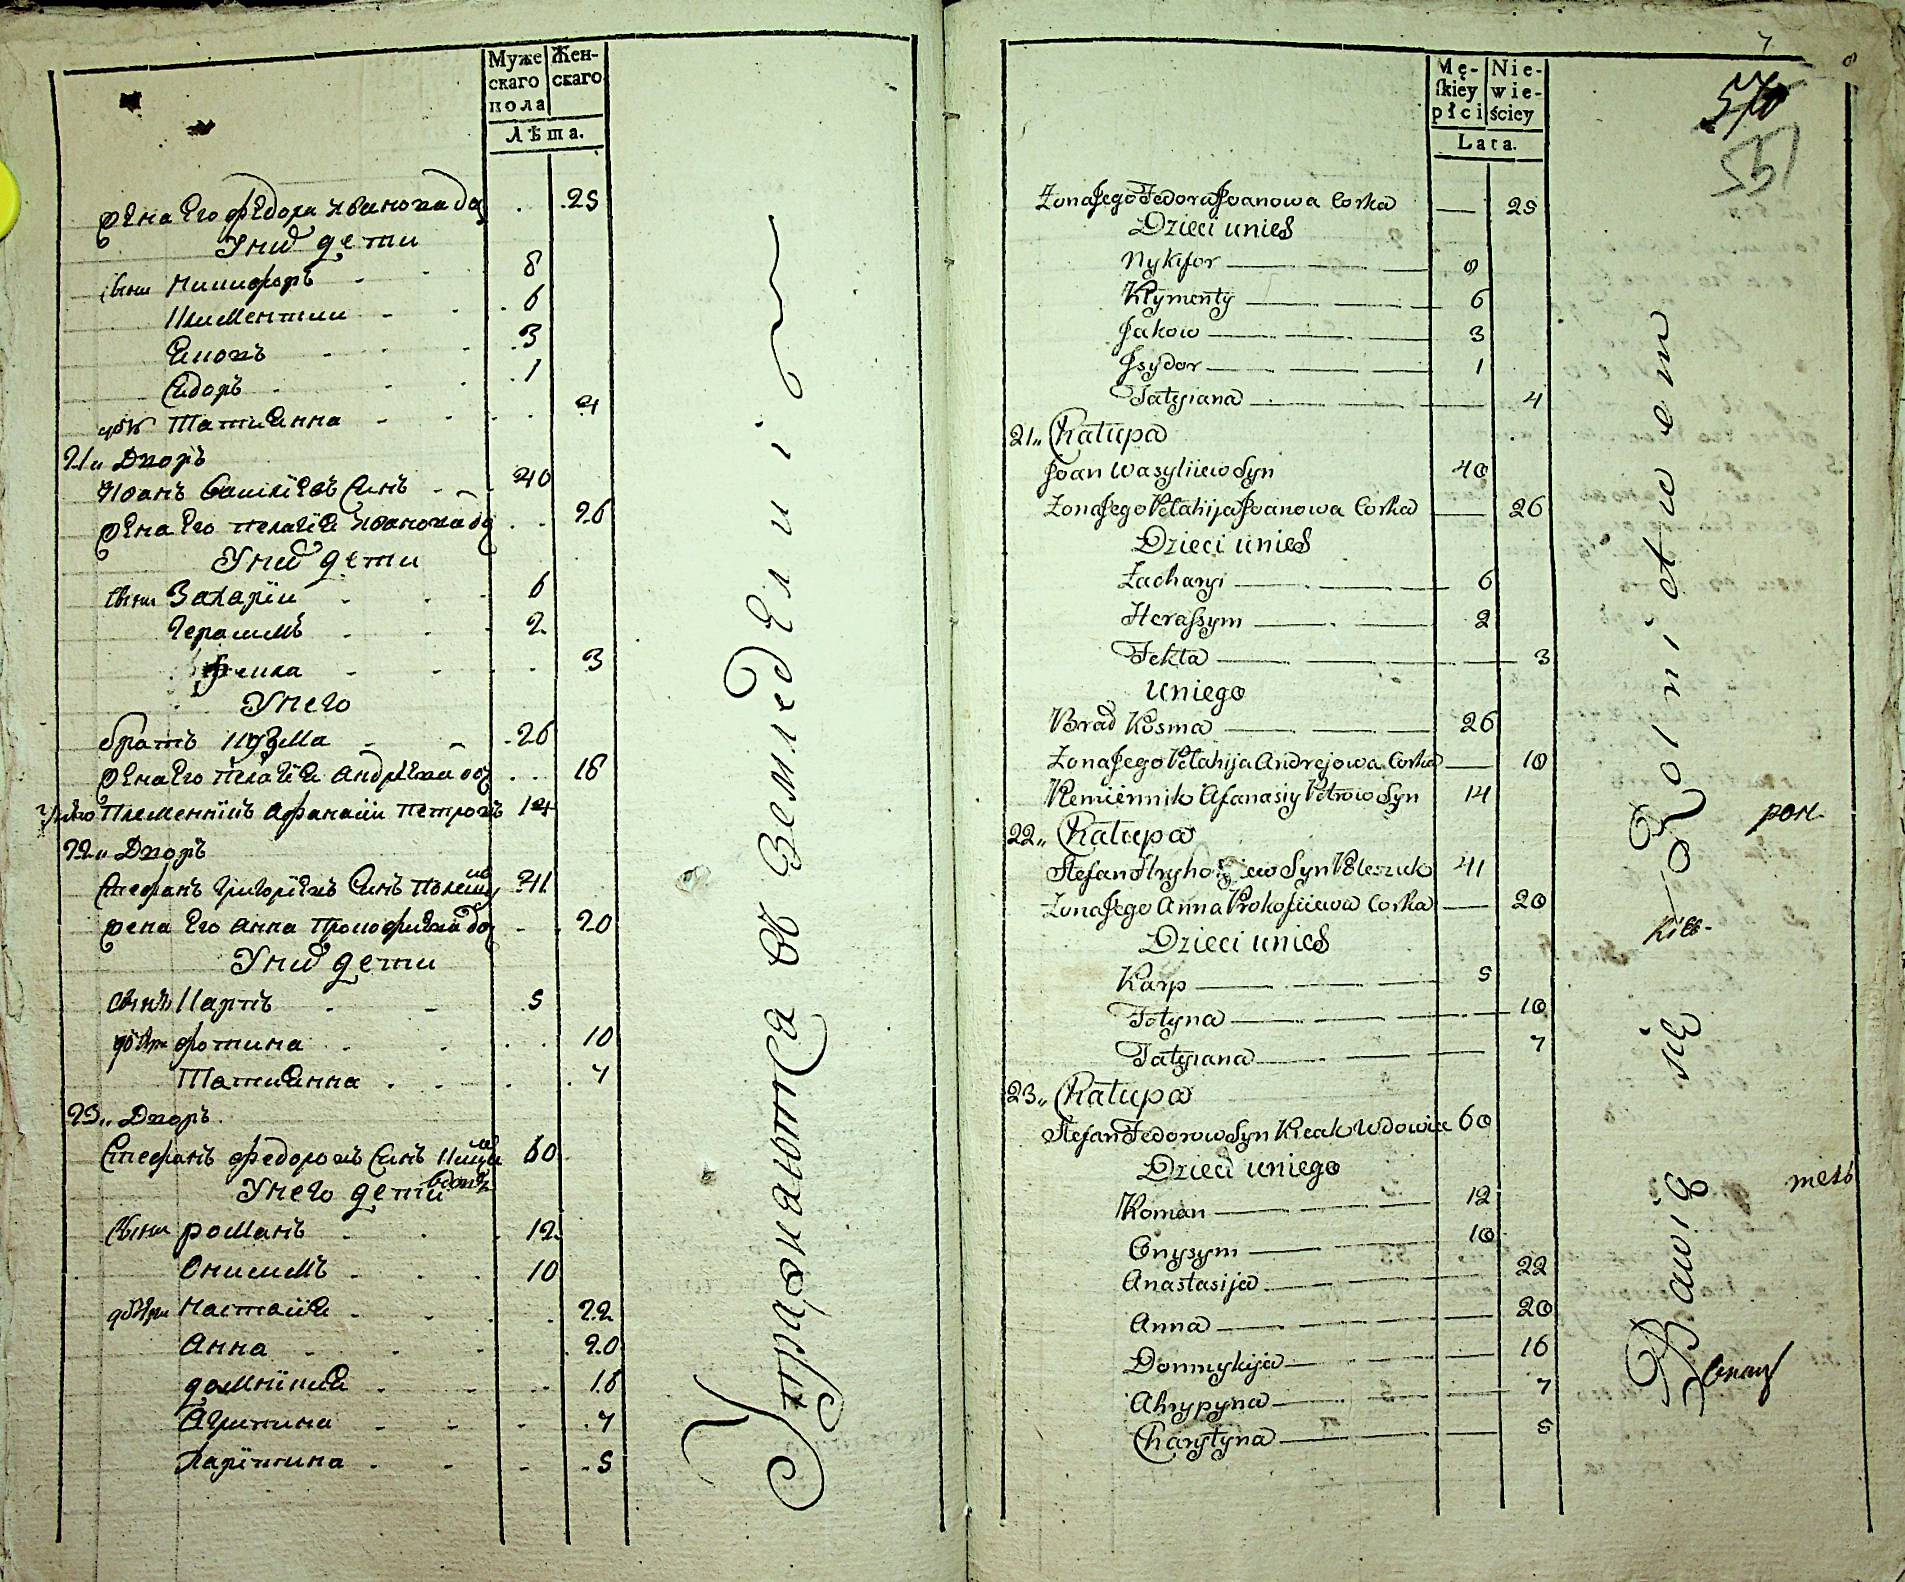 Муже скаго пола
Жен- скаго
Лѣта.
жена Его федора Иванова до 25
У них дети
сыни Никифоръ 8
Климентии 6
Сидоръ 1
Татиянна 4
21„ Дворъ
Иоанъ Василіевъ Синъ 40
жена Его Пелагия Иванова до 26
У них дети
сыни Захаріи 6
Герасимъ 2
Фекла 3
У него
братъ Кузма 26
жена Его Пелагия Андреева до 18
Племенникъ Афанасіи Петровъ 14
22„ Дворъ
Стефанъ Григоріевъ Синъ 41
жена Его Анна Прокофиева до 20
У них дети
сынъ Карпъ 5
Фотина 10
Татиянна 7
23„ Дворъ.
Стефанъ Федоровъ Синъ вдовъ 60
У него дети
сыни Романъ 12
Онисимъ 10
Настасия 22
Анна 20
Домникия 16
Агрипина 7
Харитина 5
Упражняются въ Земледелии
Mę- skiey płci
Nie- wie- ściey
Lata.
7
570
551
Zona Jego Fedora Jwanowa Corka 25
Dzieci unich
Nykifor 8
Kłymenty 6
Jakow 3
Jsydor 1
Tatyiana 4
21„ Chałupa
Joan Wasyliiew Syn 40
Zona Jego Pelahija Jwanowa Corka 26
Dzieci unich
Zacharyi 6
Herassym 2
Tekla 3
Uniego
Brad Kosma 26
Zona Jego Pelahija Andrejowa Corka 18
Plemiennik Afanasiy Petrow Syn 14
22„ Chałupa
Stefan Hryhorjew Syn Poleszuk 41
Zona Jego Anna Prokofiiewa Corka 20
Dzieci unich
Karp 5
Fotyna 10
Tatyiana 7
23„ Chałupa
Stefan Fedorow Syn Wdowiec 60
Dzieci uniego
Roman 12
Onysym 10
Anastasija 22
Anna 20
Domnykija 16
Ahrypyna 7
Charytyna 5
Bawią się Rolnictwem